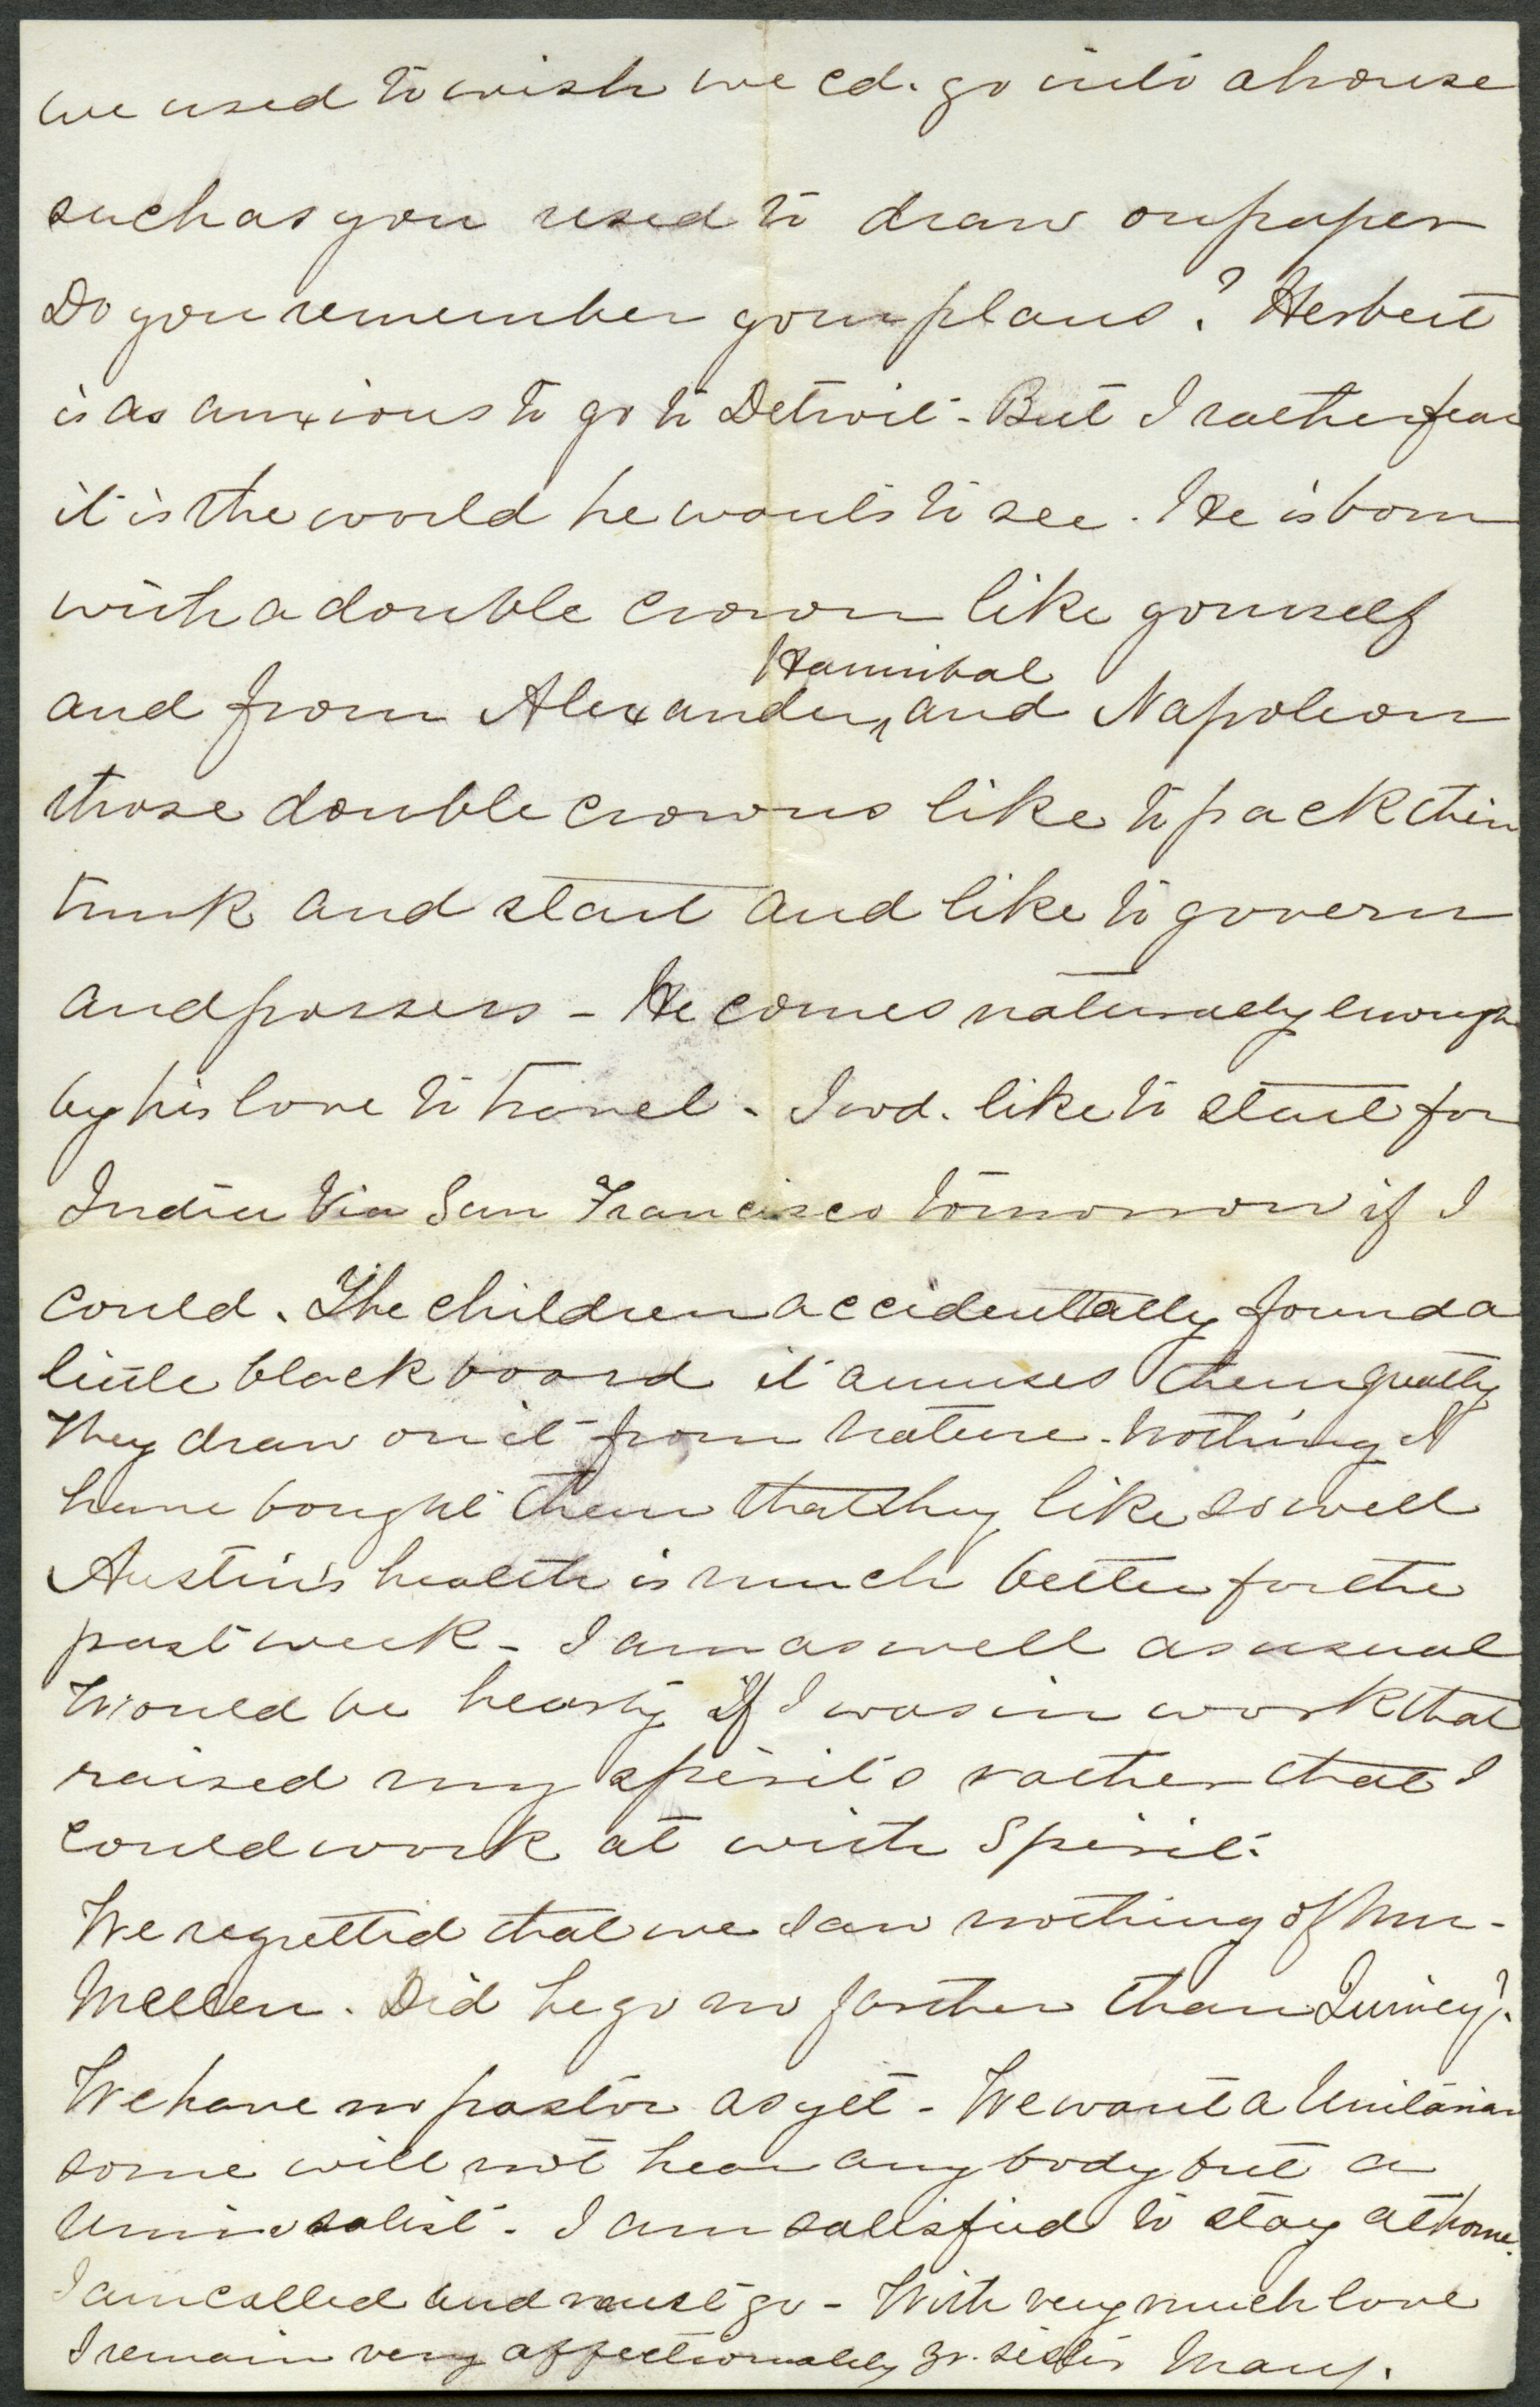 we used to wish we cd. go into a house
such as you used to draw on paper
Do you remember your plans? Herbert
is as anxious to go to Detroit - But I rather fear
it is the world he wants to see. He is born
with a double crown like yourself
Hannibal
and from Alexander, ^ and Napoleon
those double crowns like to pack their
trunk and start and like to govern
and possess - He comes naturally enough
by his love to travel - I wd. like to start for
India Via San Francisco tomorrow if I
could. The children accidentally found a
little black board it amuses them greatly
They draw on it from nature - Nothing I
have bought them that they like so well
Austin's health is much better for the
past week - I am as well as usual
Would be hearty if I was in work that
raised my spirits rather that I
could work at with spirit.
We regretted that we saw nothing of Mr.
Mellen. Did he go no farther than Quincy?
We have no pastor as yet - We want a Unitarian
some will not hear any body but a
Universalist - I am satisfied to stay at home.
I am called and must go - With very much love
I remain very affectionately yr. sister Mary.